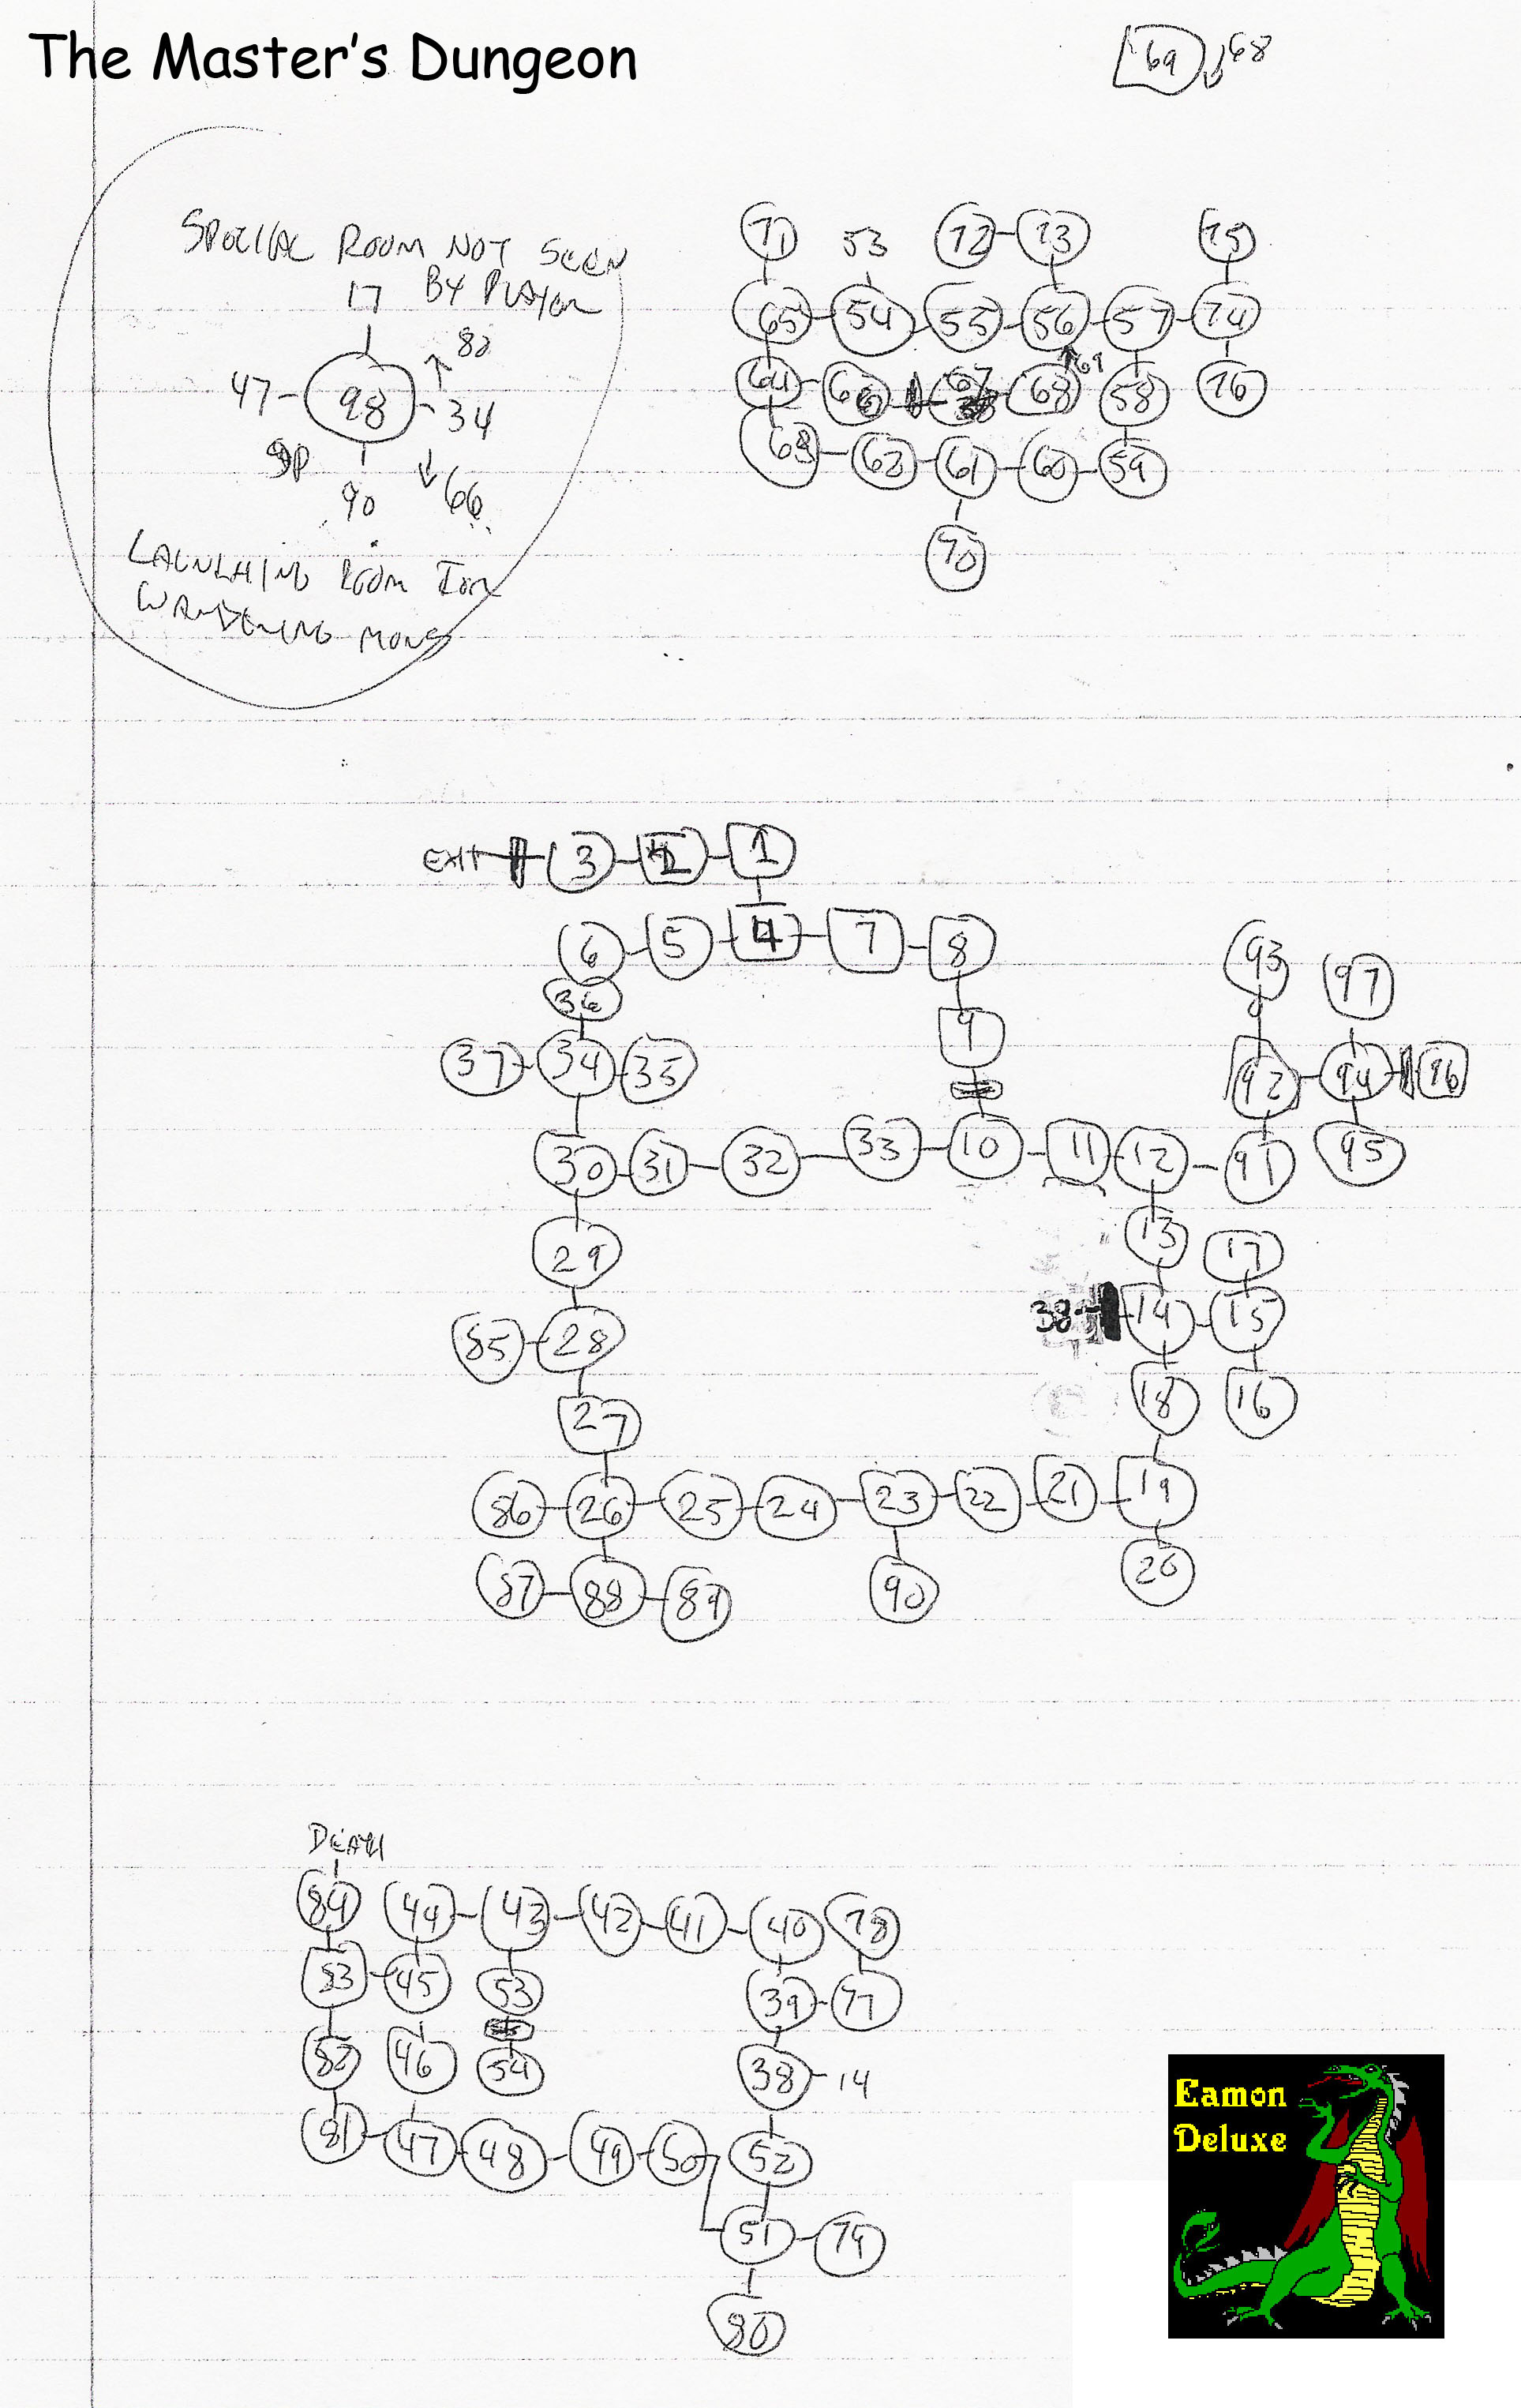 The Master's Dungeon
69 68
SPECIAL ROOM NOT SEEN
BY PLAYER
17
82
47 98 34
90
66
LAUNCHING ROOM FOR
WANDERING MONS
71 53 72 73 75
65 54 55 56 57 74
69
64 66 67 68 58 76
63 62 61 60 59
70
EXIT 3 2 1
6 5 4 7 8
36
9
37 34 35
93 97
92 94 96
30 31 32 33 10 11 12 91 95
29 13 17
85 28
38 14 15
27 18 16
86 26 25 24 23 22 21 19
87 88 89 90 20
DEATH
84 44 43 42 41 40 78
83 45 53 39 77
82 46 54 38 14
81 47 48 49 50 52
51 79
80
Eamon
Deluxe